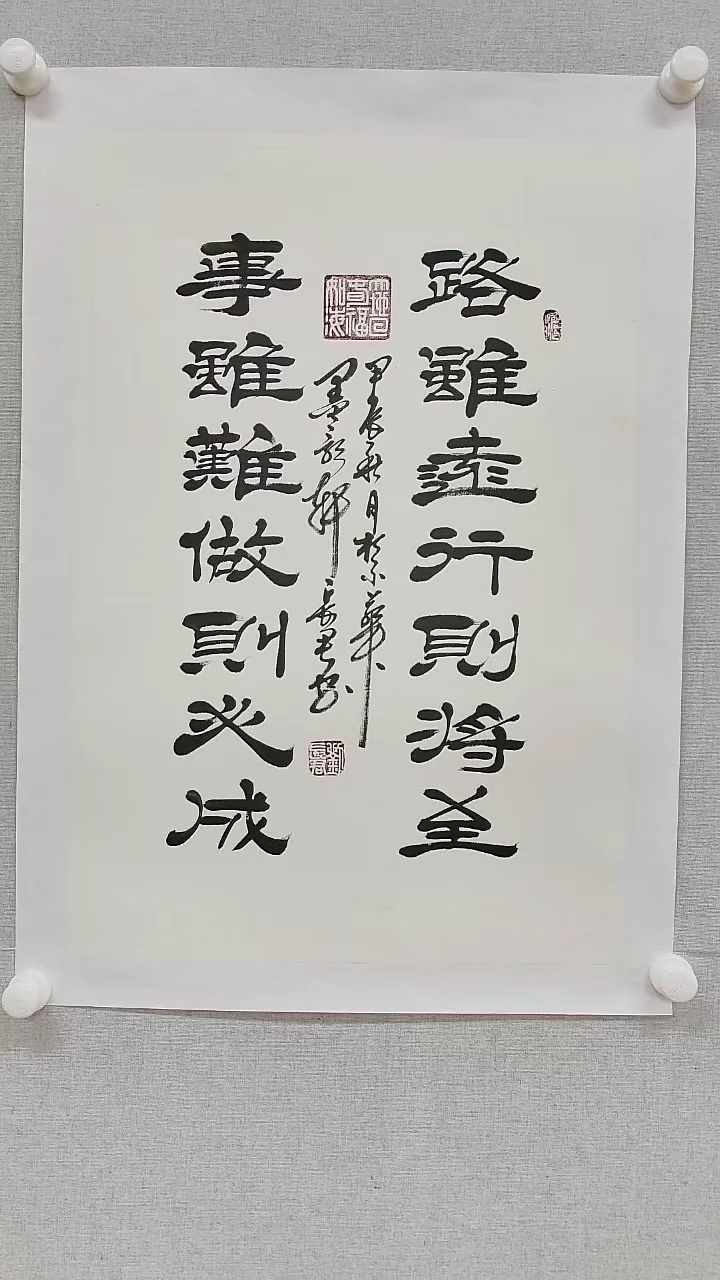 路雖遠行則將至
事雖難做則必成
甲辰秋月於京華
墨彩軒長君書